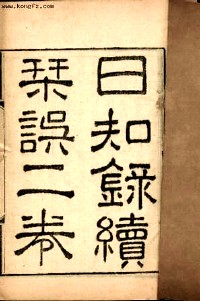 www.kongfz.com
日知錄續
栞誤二卷